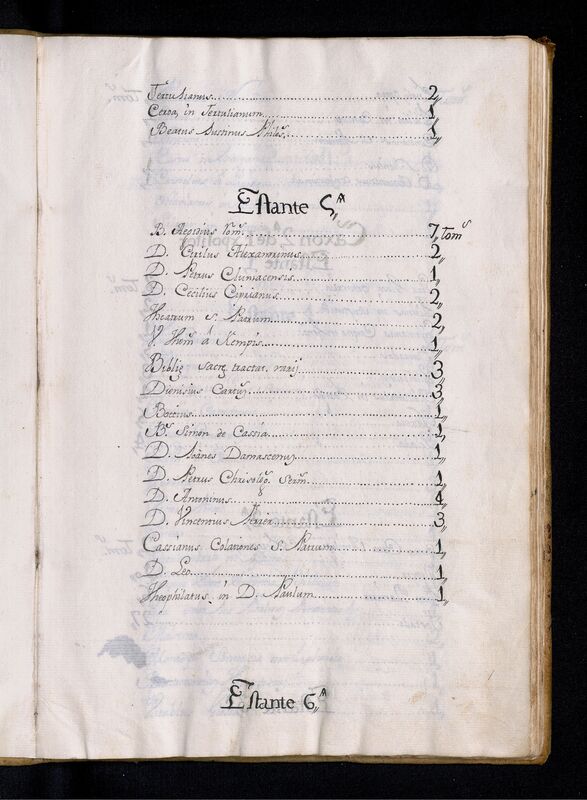 Tertulianus 2,,
Cerda, in Tertulianum 1,,
Beatus Iustinus Philos. 1,,
Estante 5,,ª
B. Aegidius Rom. 7,, tomˢ
D. Cirilus Alexanrinus 2,,
D. Petrus Cluniacensis 1,,
D. Cecilius Ciprianus 2,,
Theatrum S. Patrum 2,,
V. Thom. á Kempis 1,,
Biblię Sacrę tractat. varij 3,,
Dionisius Cartuj. 3,,
Boetius 1,,
Bᵗ. Simon de Cassia 1,,
D. Ioānes Damascenuȷ 1,,
D. Petrus Chrisologo. Serm. 1,,
D. Antoninus 4,,
D. Vincentius Ferrer 3,,
Cassianus Colationes S. Patrum 1,,
D. Leo 1,,
Theophilatus, in D. Paulum 1,,
Estante 6,,ª